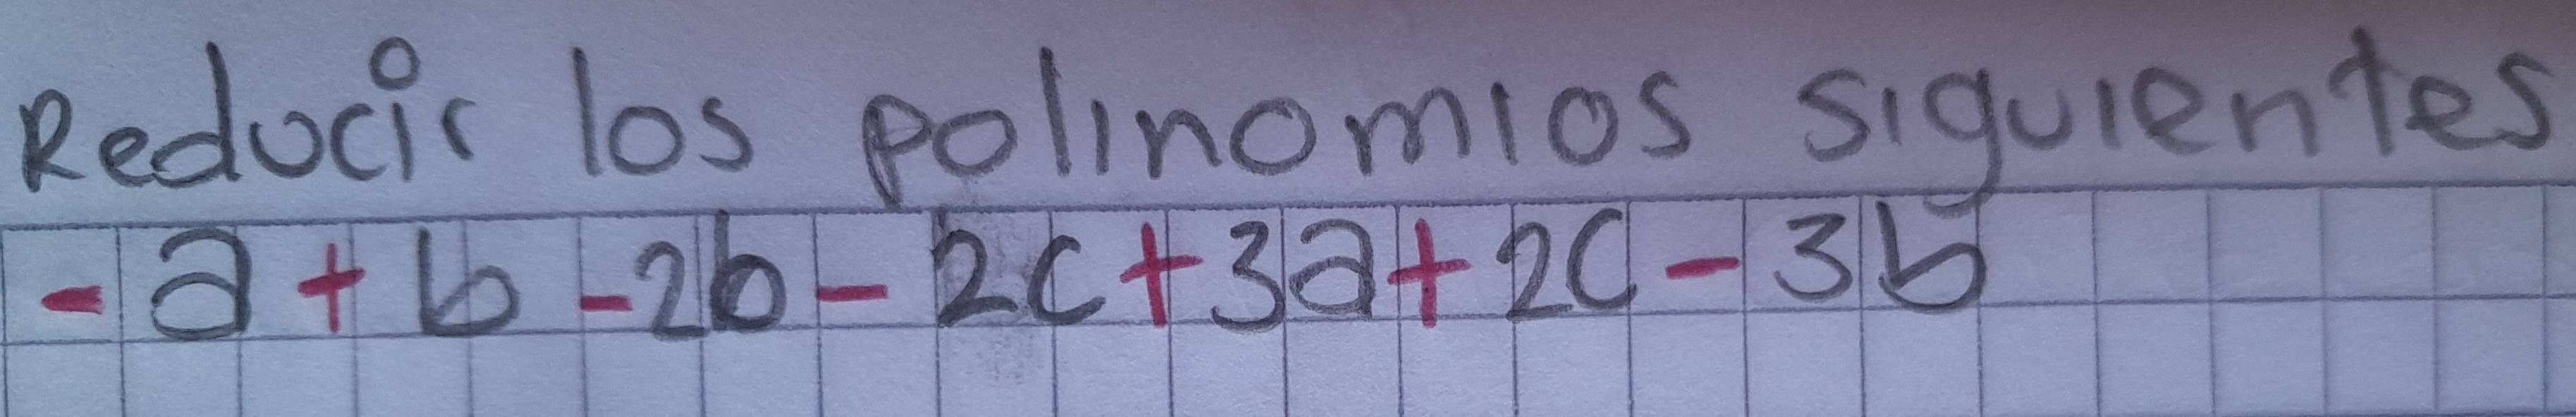 Reducir los polinomios siguientes
- a + b - 2b - 2c + 3a + 2c - 3b